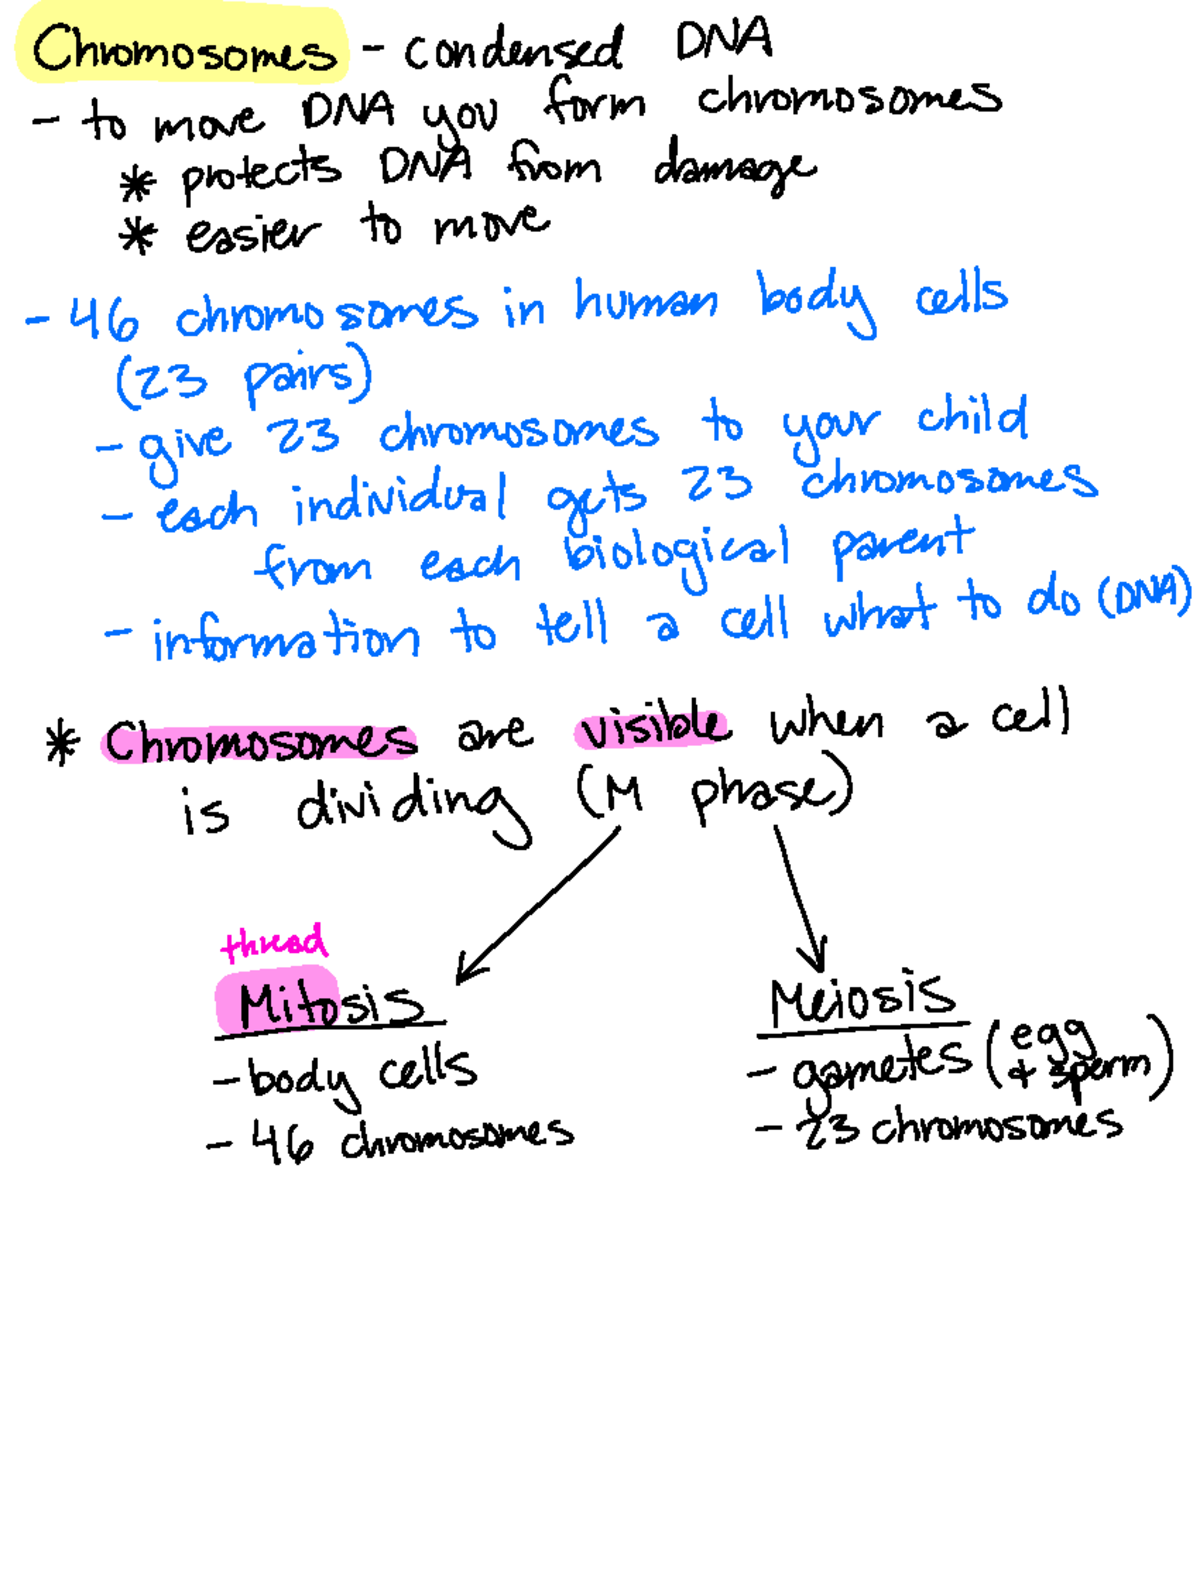 Chromosomes - condensed DNA
- to move DNA you form chromosomes
* protects DNA from damage
* easier to move
- 46 chromosomes in human body cells
(23 pairs)
- give 23 chromosomes to your child
- each individual gets 23 chromosomes
from each biological parent
- information to tell a cell what to do (DNA)
* Chromosomes are visible when a cell
is dividing (M phase)
thread
Mitosis
- body cells
- 46 chromosomes
Meiosis
- gametes (egg
+ sperm)
- 23 chromosomes